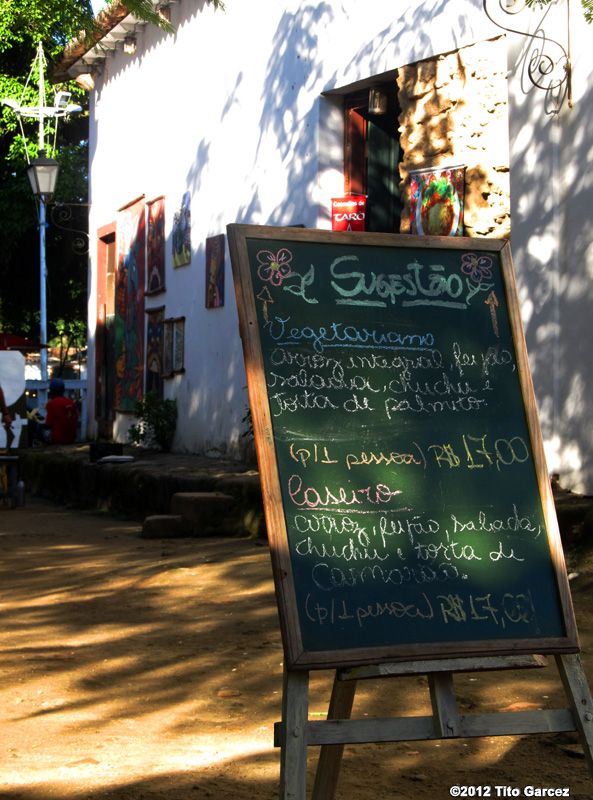 TARÔ
SUGESTÃO
Vegetariano
arroz integral, feijão,
salada, chuchu e
torta de palmito.
(p/1 pessoa) R$ 17,00
Caseiro
arroz, feijão, salada,
chuchu e torta de
Camarão.
(p/1 pessoa) R$ 17,00
©2012 Tito Garcez